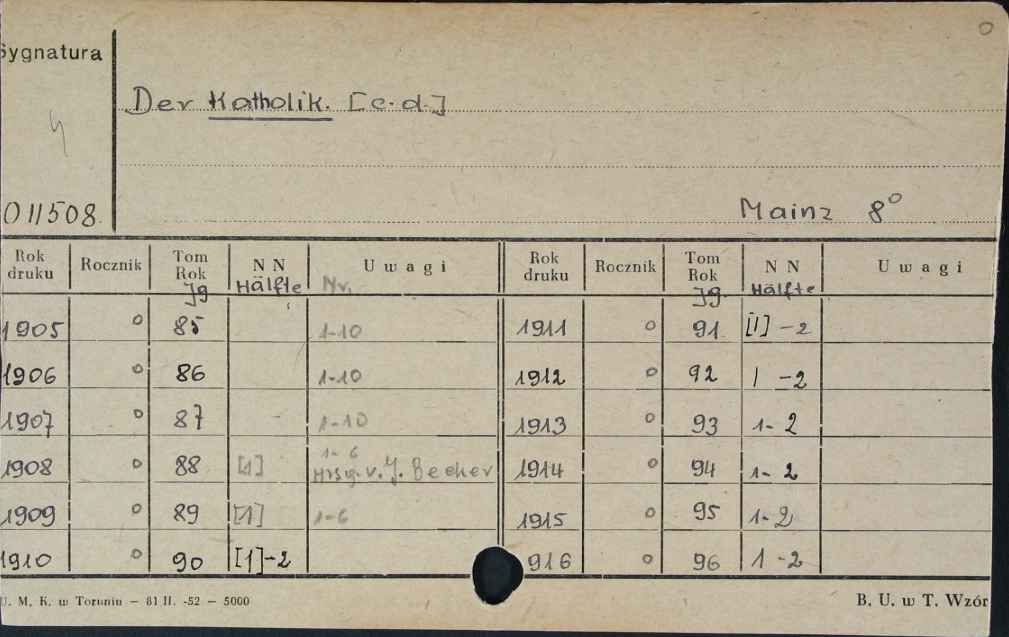 o
Sygnatura
Der Katholik. [c.d.]
4
011508
Mainz 8°
Rok druku Rocznik Tom Rok NN Uwagi Rok druku Rocznik Tom Rok NN Uwagi
Jg Hälfte Nr. Jg. Hälfte
1905 o 85 1-10 1911 o 91 [1]-2
1906 o 86 1-10 1912 o 92 1-2
1907 o 87 1-10 1913 o 93 1-2
1908 o 88 [1] 1-6 Hrsg. v. J. Becker 1914 o 94 1-2
1909 o 89 [1] 1-6 1915 o 95 1-2
1910 o 90 [1]-2 916 o 96 1-2
U. M. K. w Toruniu — 81 II. -52 — 5000 B. U. w T. Wzór